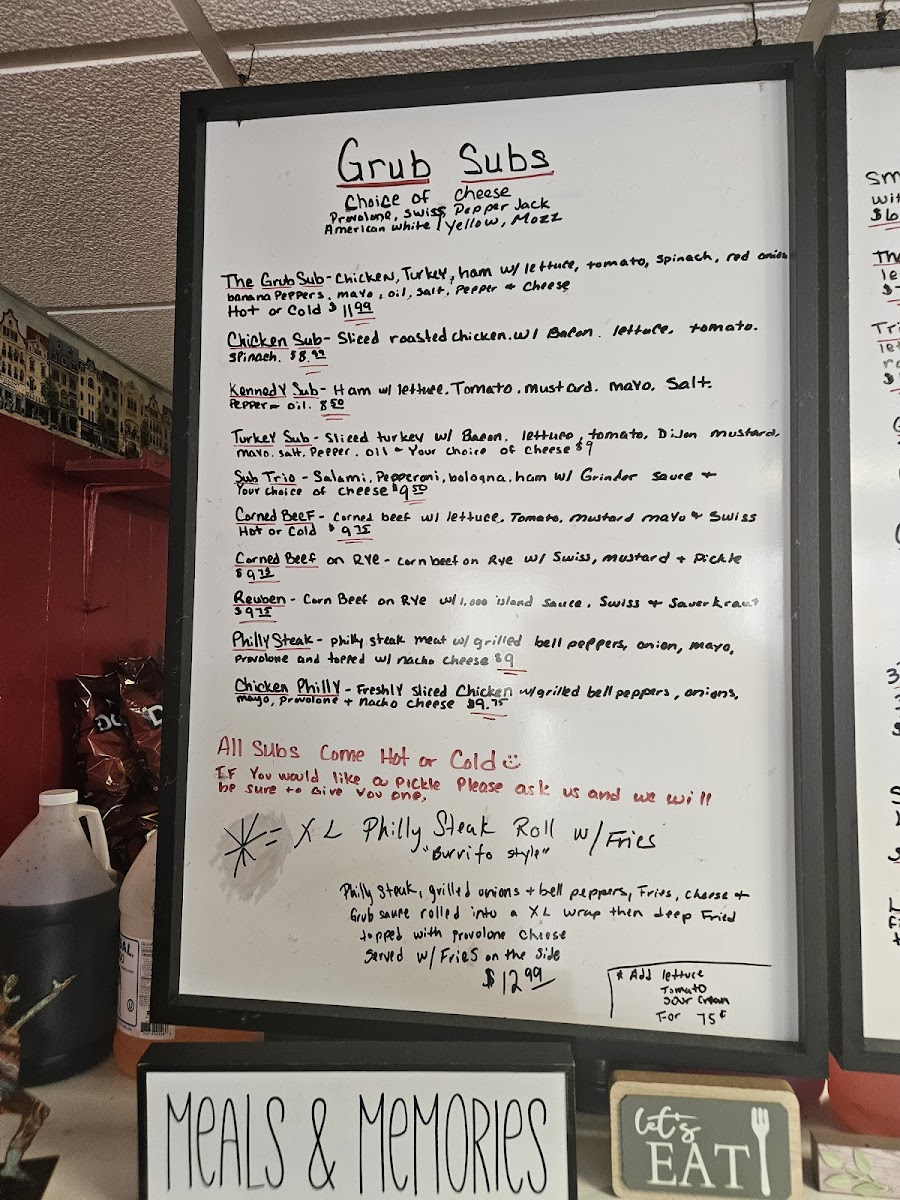 Grub Subs
Choice of Cheese
Provolone, Swiss Pepper Jack
American white / Yellow, Mozz
The Grub Sub - Chicken, Turkey, ham w/ lettuce, tomato, spinach, red onion
banana Peppers, mayo, oil, salt, pepper + cheese
Hot or Cold $11.99
Chicken Sub - Sliced roasted chicken w/ Bacon. lettuce. tomato.
spinach. $8.99
Kennedy Sub - Ham w/ lettuce. Tomato. mustard. mayo. Salt.
Pepper - oil. 8.50
Turkey Sub - Sliced turkey w/ Bacon. lettuce, tomato, Dijon mustard,
mayo. salt. Pepper. oil - Your choice of cheese $9
Sub Trio - Salami, Pepperoni, bologna, ham w/ Grinder sauce +
Your choice of cheese $9.50
Corned Beef - Corned beef w/ lettuce, Tomato, mustard mayo + Swiss
Hot or Cold $9.75
Corned Beef on Rye - corn beef on Rye w/ Swiss, mustard + Pickle
$9.75
Reuben - Corn Beef on Rye w/ 1,000 island sauce, Swiss + Sauerkraut
$9.75
Philly Steak - philly steak meat w/ grilled bell peppers, onion, mayo,
provolone and topped w/ nacho cheese $9
Chicken Philly - Freshly sliced Chicken w/ grilled bell peppers, onions,
mayo, provolone + nacho cheese $9.75
All Subs Come Hot or Cold
IF You would like a Pickle Please ask us and we will
be sure to Give You one.
= XL Philly Steak Roll w/ Fries
"Burrito style"
Philly Steak, grilled onions + bell peppers, Fries, cheese +
Grub sauce rolled into a XL wrap then deep Fried
topped with provolone cheese
Served w/ Fries on the side
$12.99
* Add lettuce
Tomato
Sour cream
For 75¢
MEALS & MEMORIES
let's
EAT